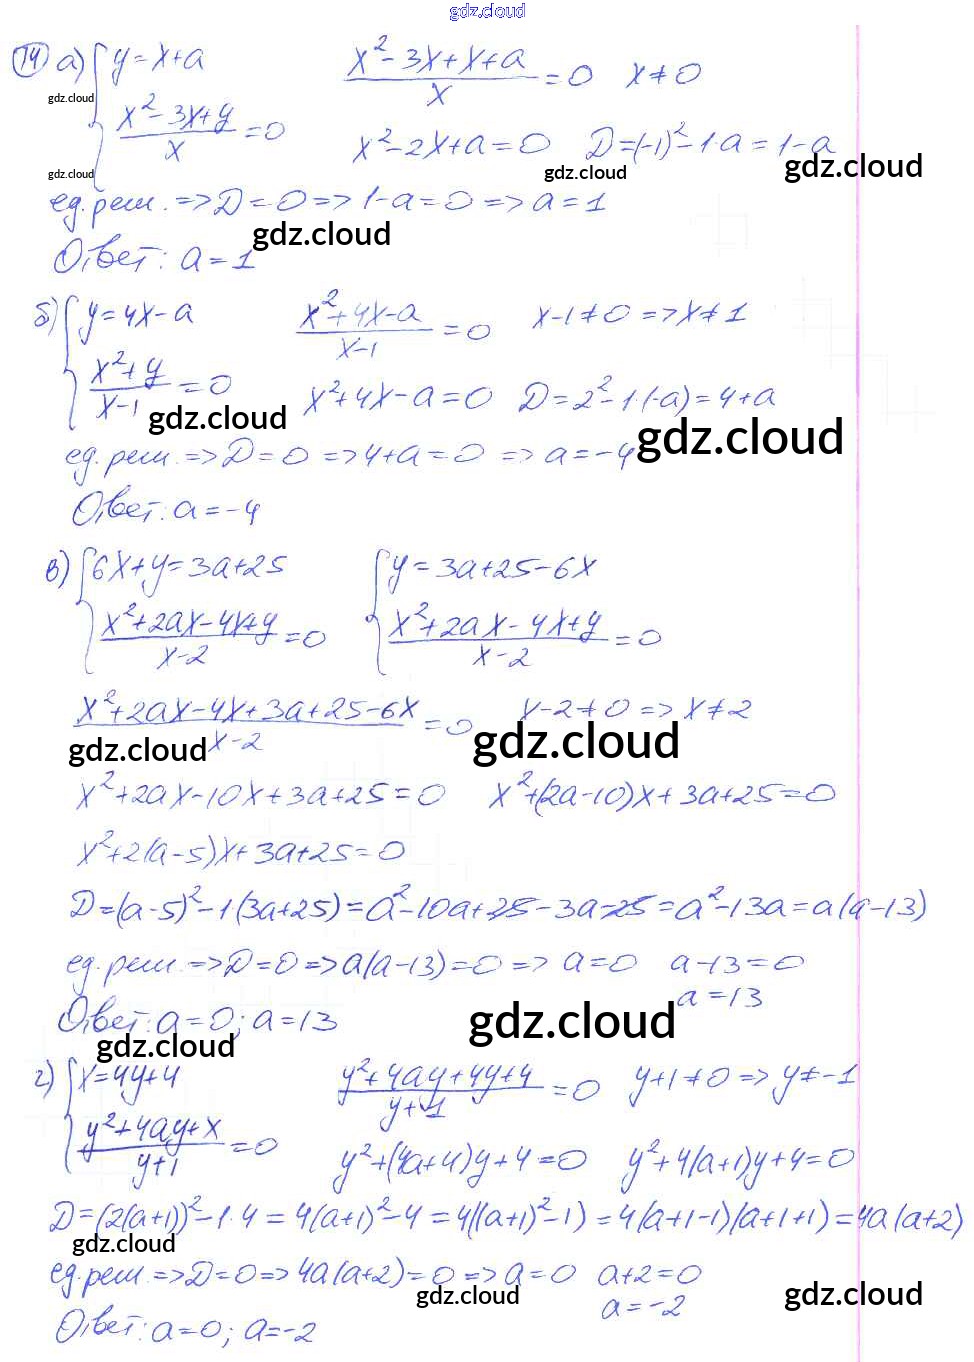 gdz.cloud
14 а) { y = x+a    (x²-3x+x+a)/x = 0    x≠0
gdz.cloud
(x²-3x+y)/x = 0    x²-2x+a=0    D=(-1)²-1·a=1-a
gdz.cloud    gdz.cloud    gdz.cloud
ед. реш. => D=0 => 1-a=0 => a=1
gdz.cloud
Ответ: a=1
б) { y=4x-a    (x²+4x-a)/(x-1) = 0    x-1≠0 => x≠1
(x²+y)/(x-1) = 0    x²+4x-a=0    D=2²-1·(-a)=4+a
gdz.cloud    gdz.cloud
ед. реш. => D=0 => 4+a=0 => a=-4
Ответ: a=-4
в) { 6x+y=3a+25    { y=3a+25-6x
(x²+2ax-4x+y)/(x-2) = 0    (x²+2ax-4x+y)/(x-2) = 0
(x²+2ax-4x+3a+25-6x)/(x-2) = 0    x-2≠0 => x≠2
gdz.cloud    gdz.cloud
x²+2ax-10x+3a+25=0    x²+(2a-10)x+3a+25=0
x²+2(a-5)x+3a+25=0
D=(a-5)²-1(3a+25)=a²-10a+25-3a-25=a²-13a=a(a-13)
ед. реш. => D=0 => a(a-13)=0 => a=0    a-13=0
a=13
Ответ: a=0; a=13
gdz.cloud    gdz.cloud
г) { x=4y+4    (y²+4ay+4y+4)/(y+1) = 0    y+1≠0 => y≠-1
(y²+4ay+x)/(y+1) = 0    y²+(4a+4)y+4=0    y²+4(a+1)y+4=0
D=(2(a+1))²-1·4=4(a+1)²-4=4((a+1)²-1)=4(a+1-1)(a+1+1)=4a(a+2)
gdz.cloud
ед. реш. => D=0 => 4a(a+2)=0 => a=0    a+2=0
gdz.cloud    gdz.cloud
a=-2
Ответ: a=0; a=-2